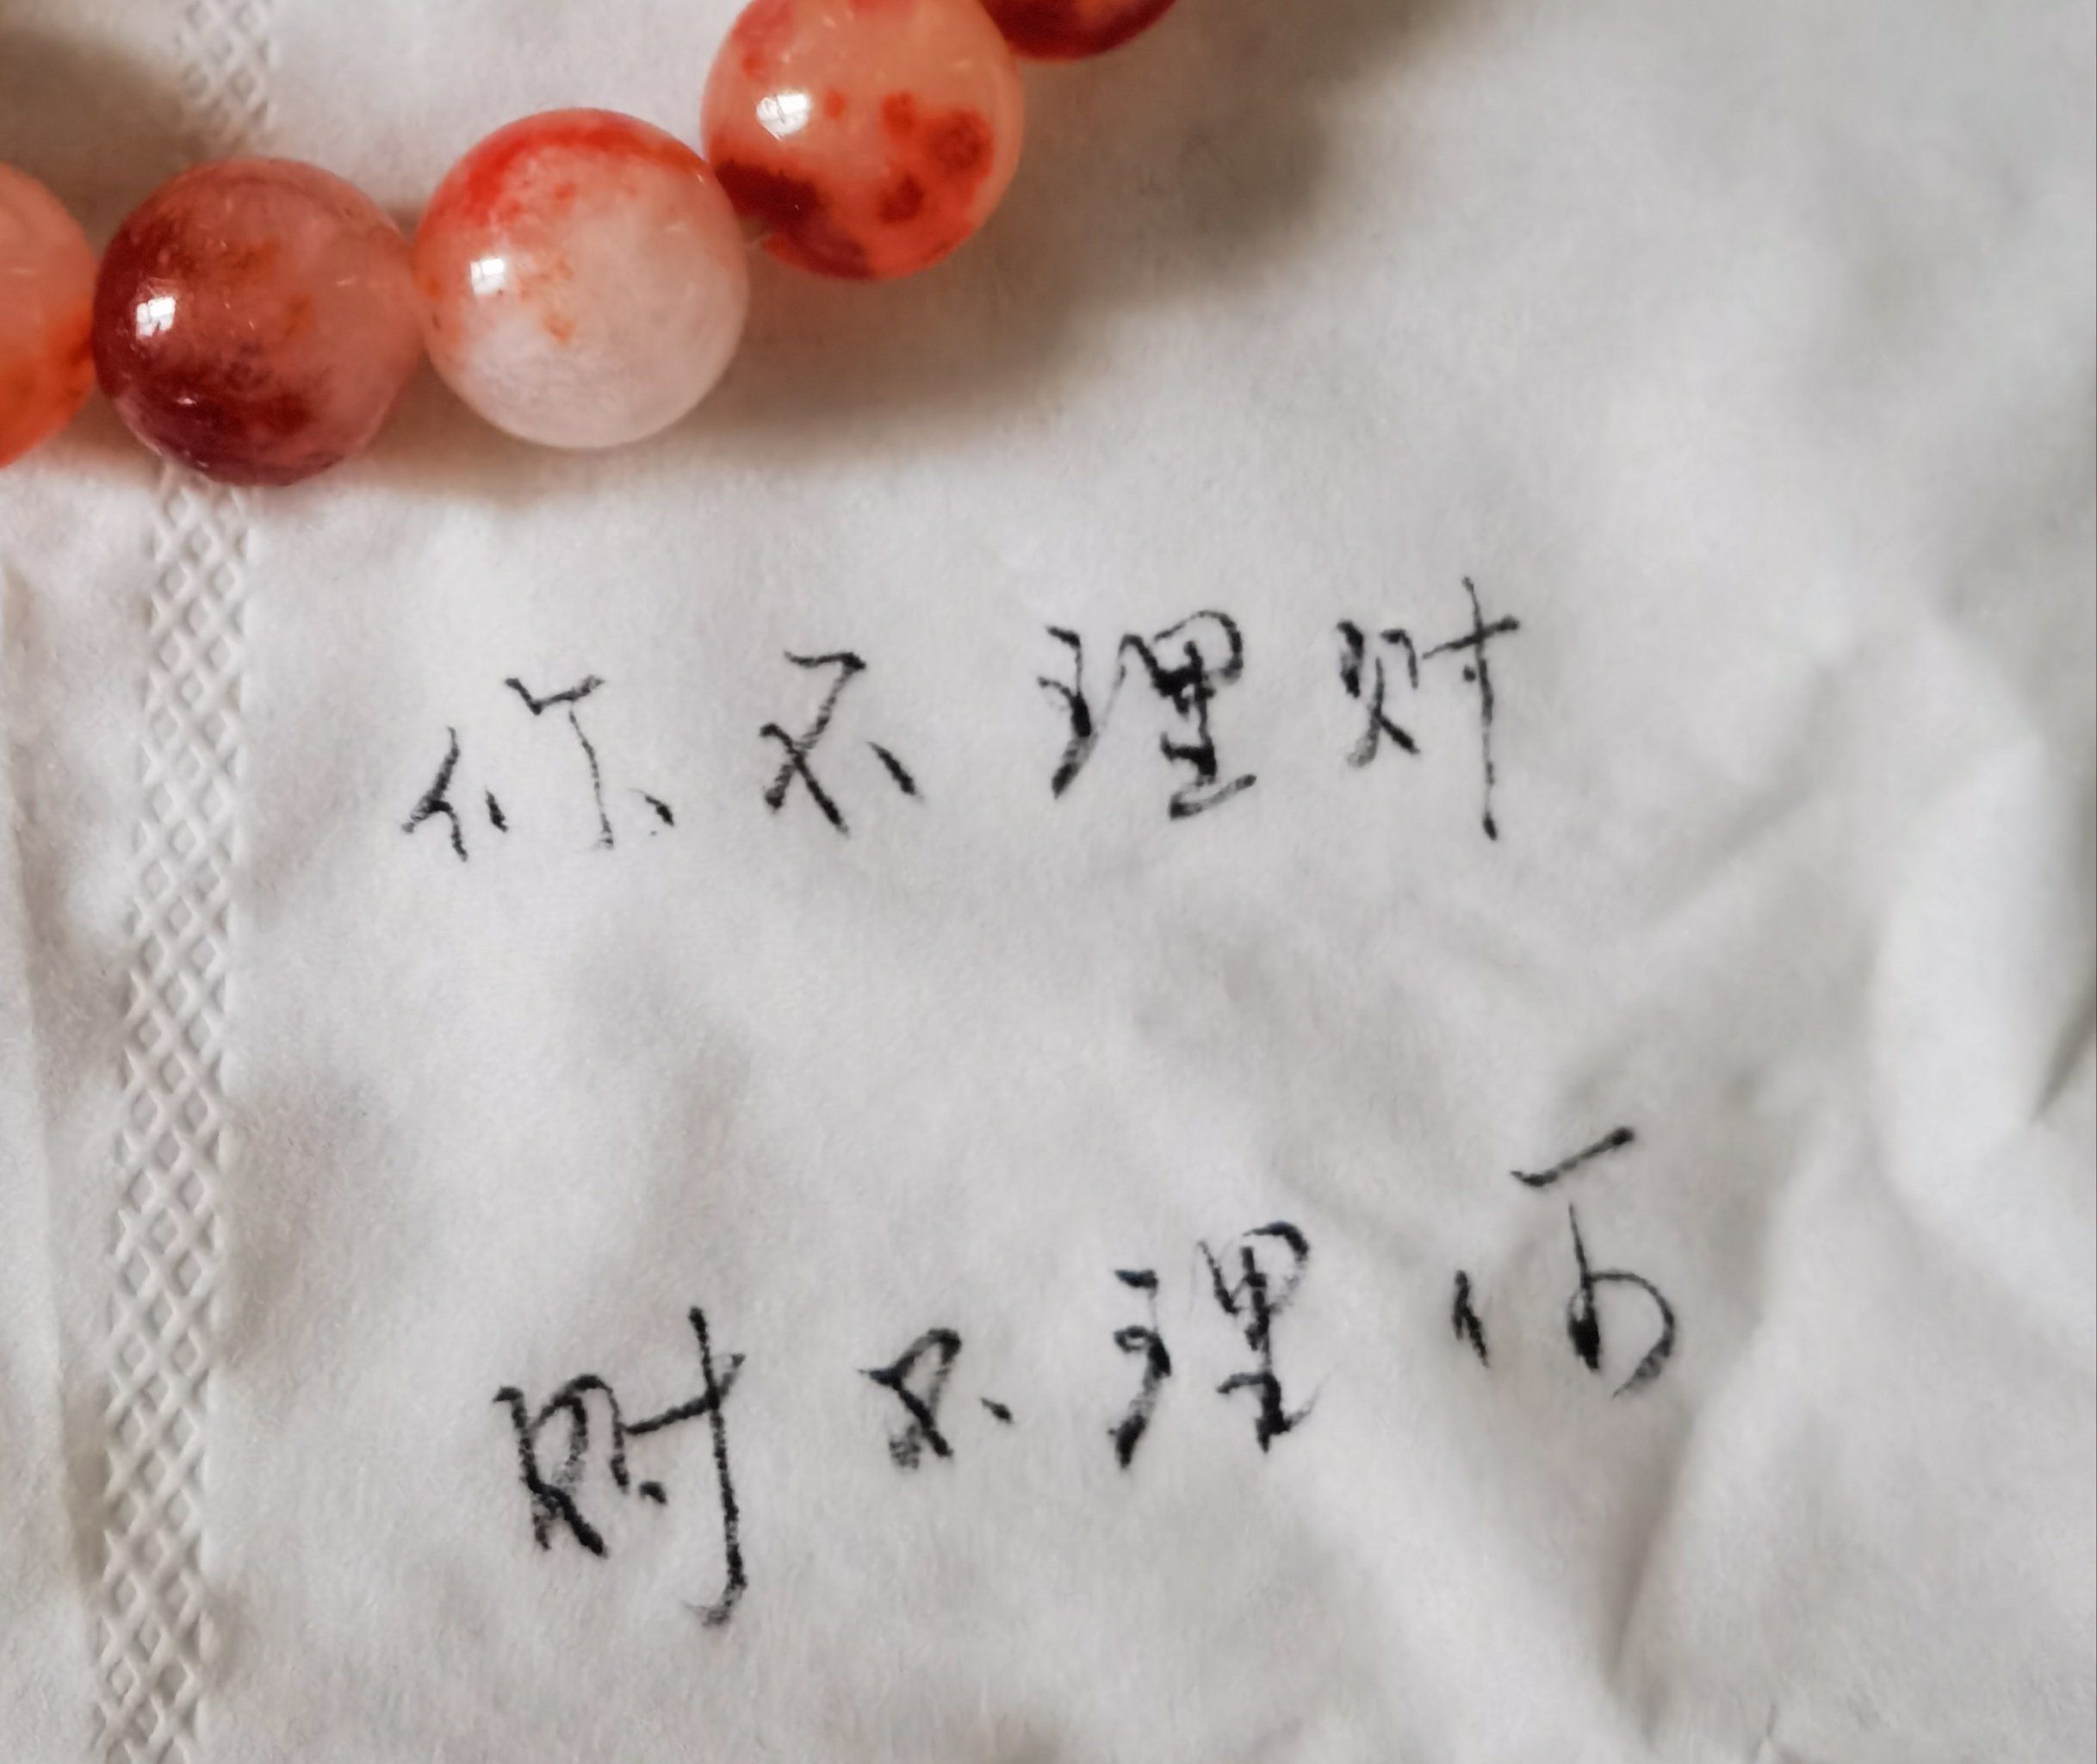 你不理财
财不理你